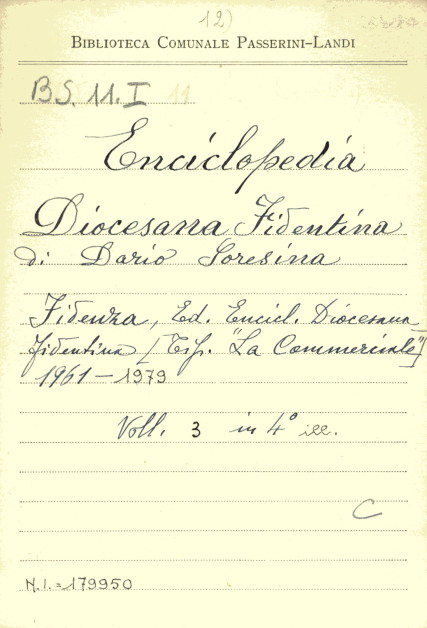 12)
BIBLIOTECA COMUNALE PASSERINI-LANDI
BS. 11. I
Enciclopedia
Diocesana Fidentina
di Dario Soresina
Fidenza, Ed. Encicl. Diocesana
fidentina [Tip. "La Commerciale"]
1961-1979
Voll. 3 in 4° ill.
C
N.I.=179950